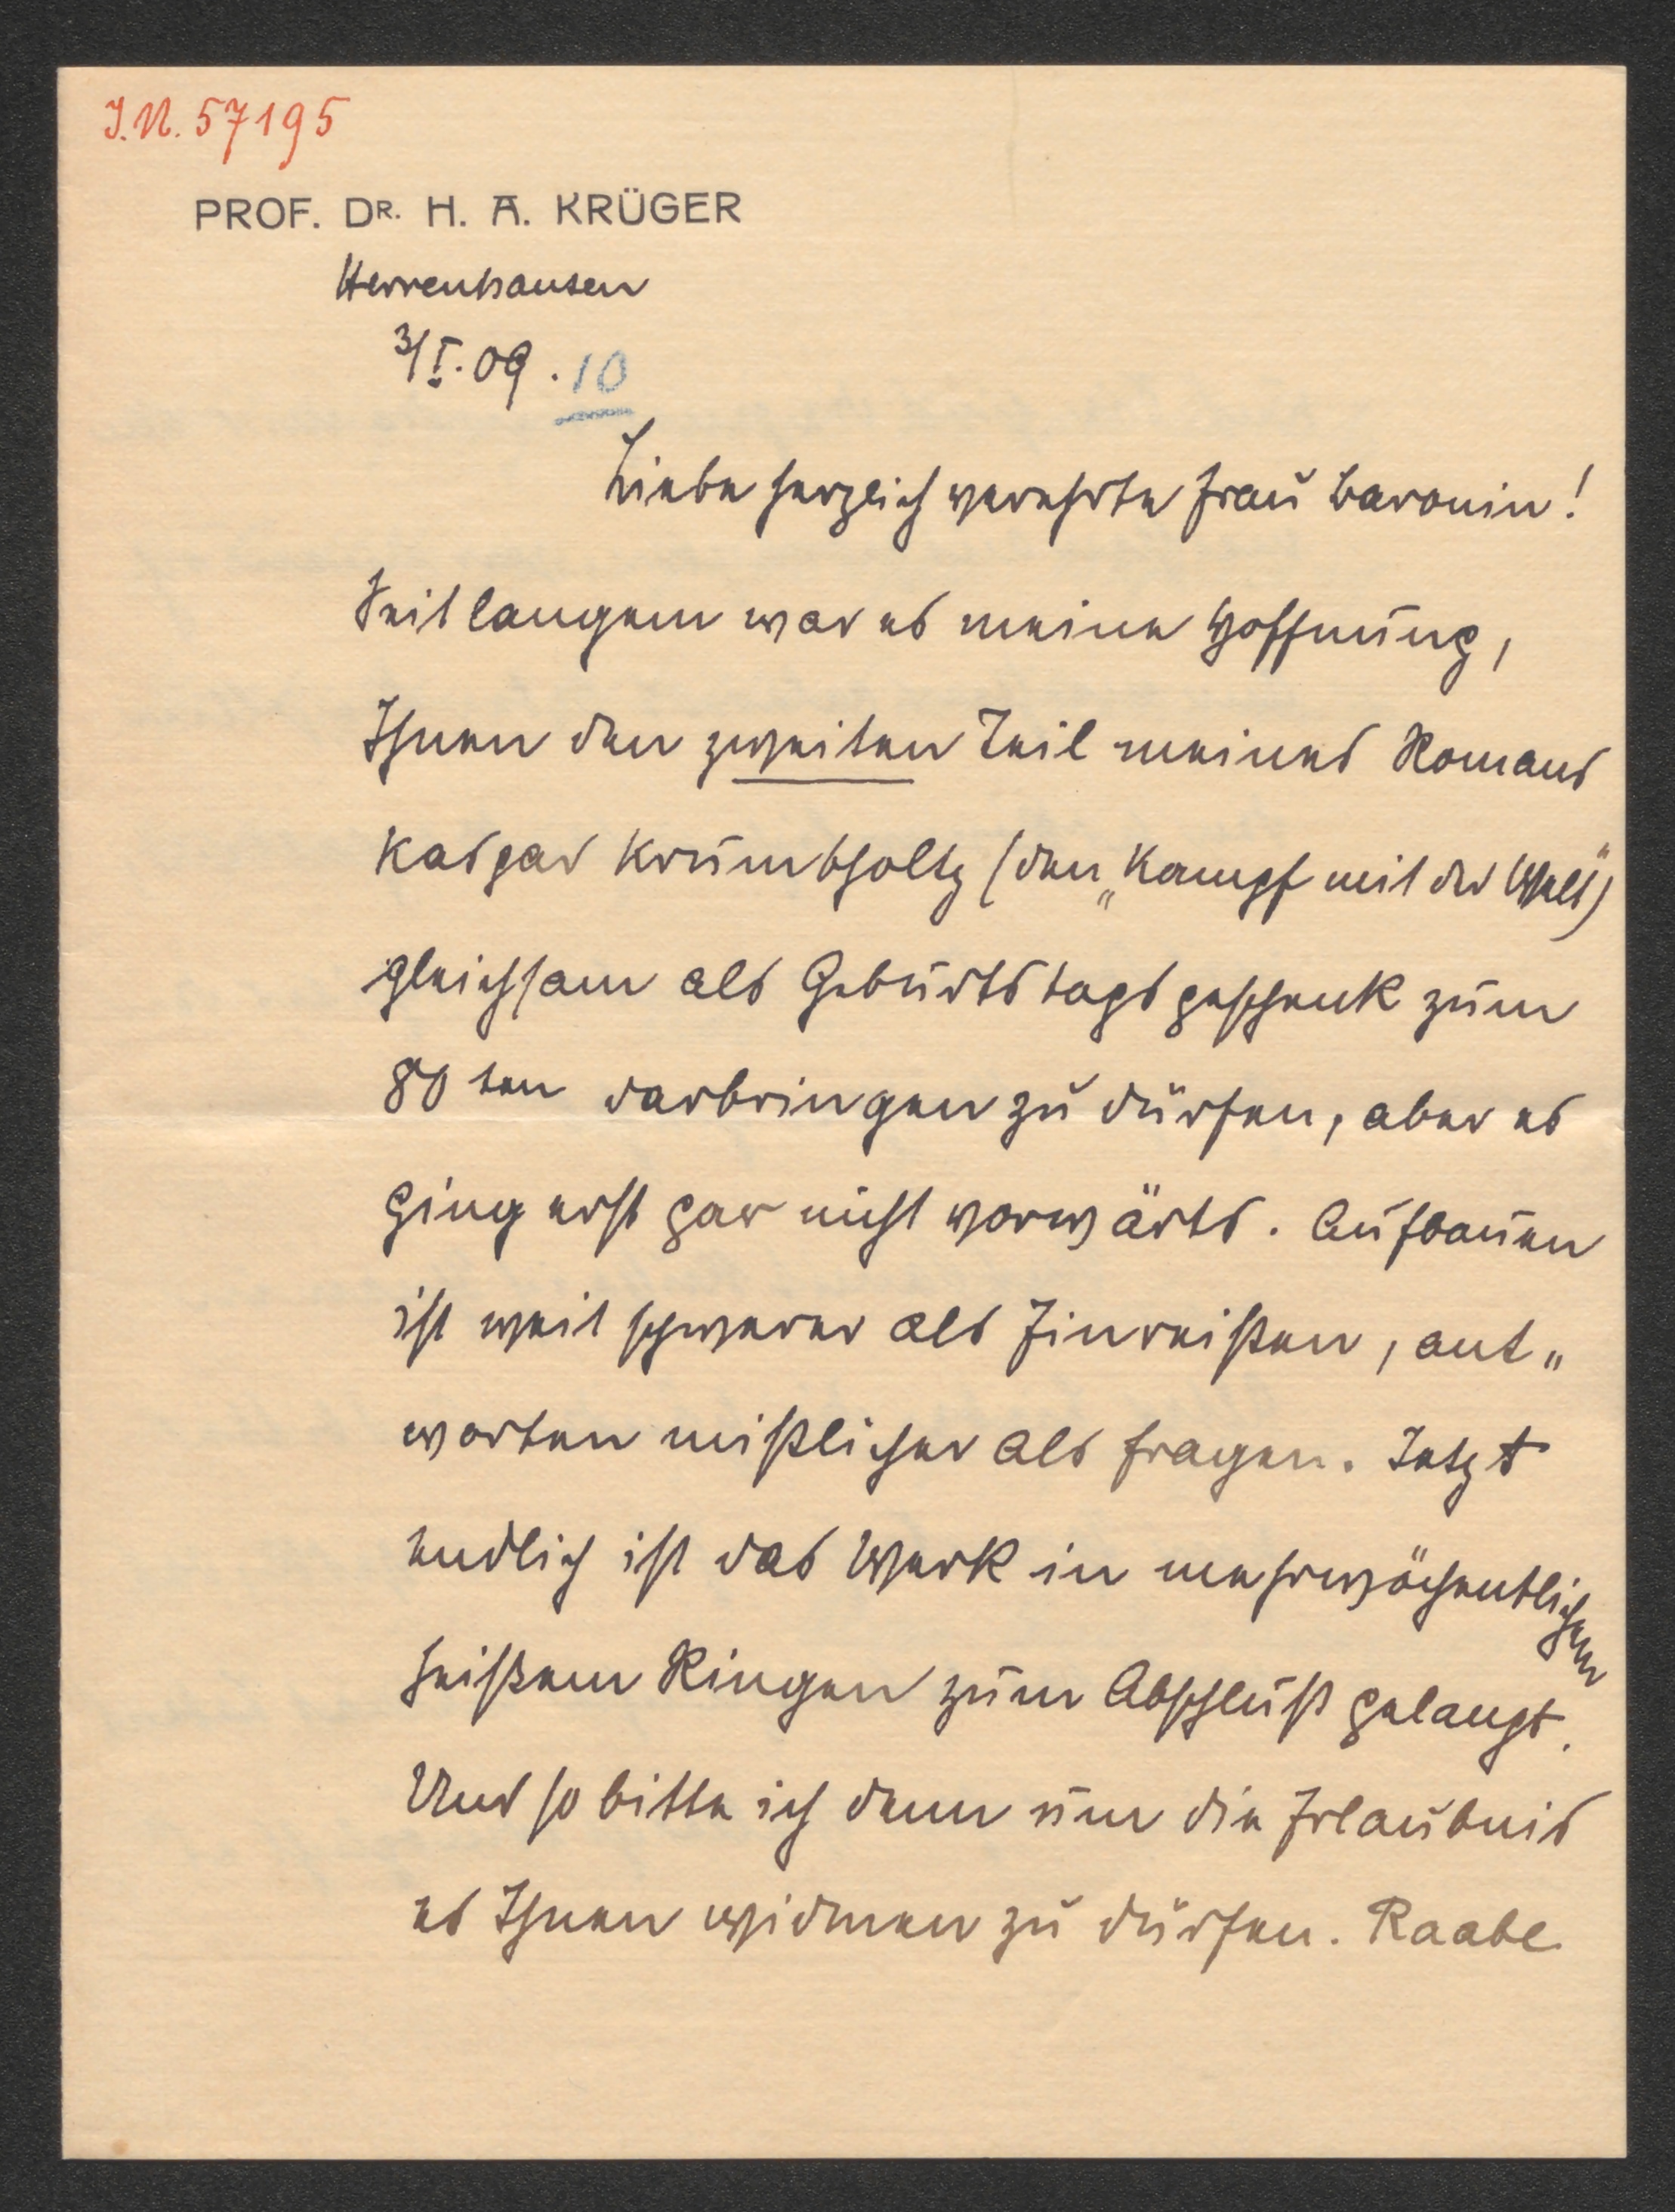 J.N. 57195
PROF. DR. H. A. KRÜGER
Herrenhausen
3/I. 09. 10
Liebe herzlich verehrte Frau Baronin!
Seit langem war es meine Hoffnung,
Ihnen den zweiten Teil meines Romans
Kaspar Krumbholtz (den „Kampf mit der Welt")
gleichsam als Geburtstagsgeschenk zum
80ten darbringen zu dürfen, aber es
ging erst gar nicht vorwärts. Aufbauen
ist weit schwerer als Einreißen, ant„
worten mißlicher als fragen. Jetzt
endlich ist das Werk in mehrwöchentlichem
heißem Ringen zum Abschluß gelangt.
Und so bitte ich denn um die Erlaubnis
es Ihnen widmen zu dürfen. Raabe